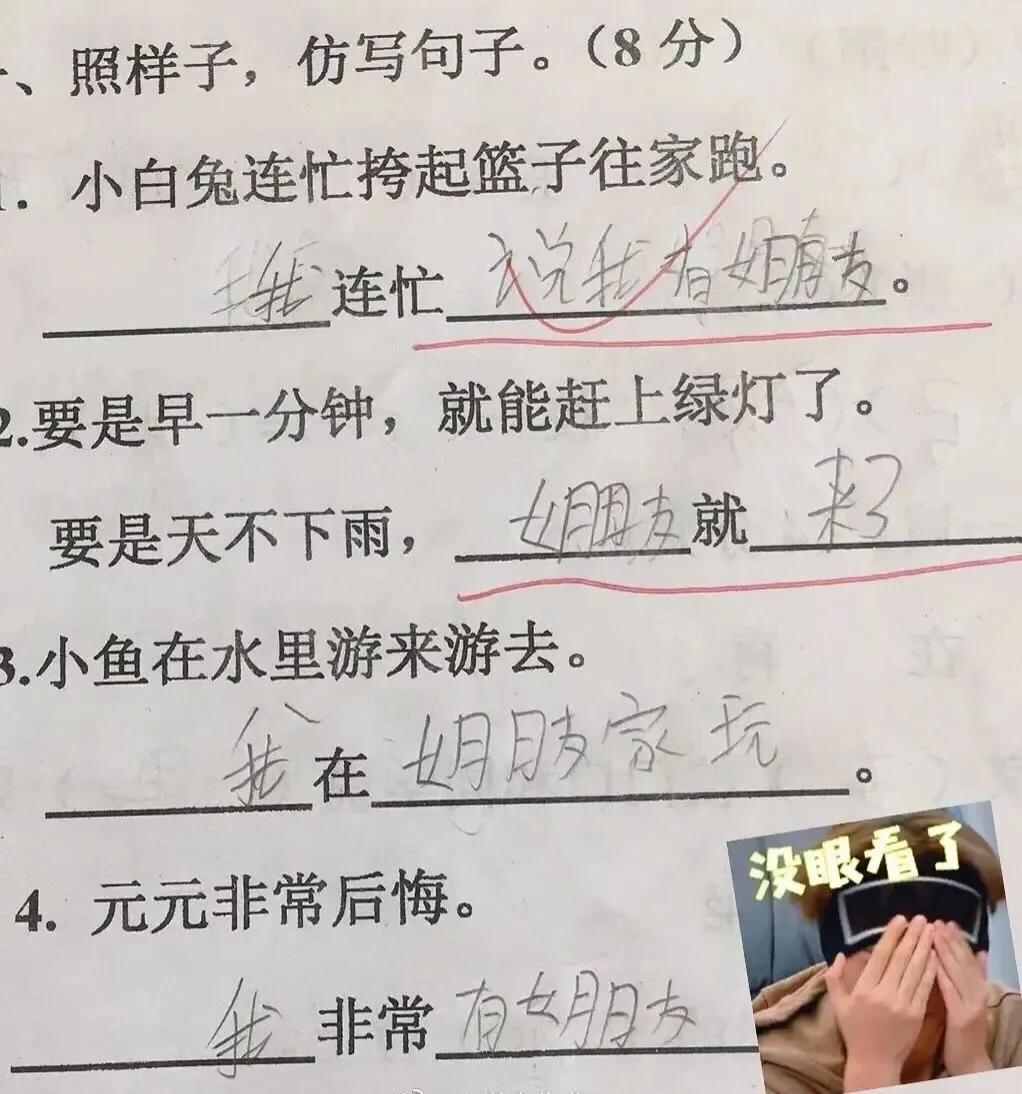 一、照样子，仿写句子。（8分）
1. 小白兔连忙挎起篮子往家跑。
我连忙说我有女朋友。
2.要是早一分钟，就能赶上绿灯了。
要是天不下雨，女朋友就来了
3.小鱼在水里游来游去。
我在女朋友家玩。
没眼看了
4. 元元非常后悔。
我非常有女朋友